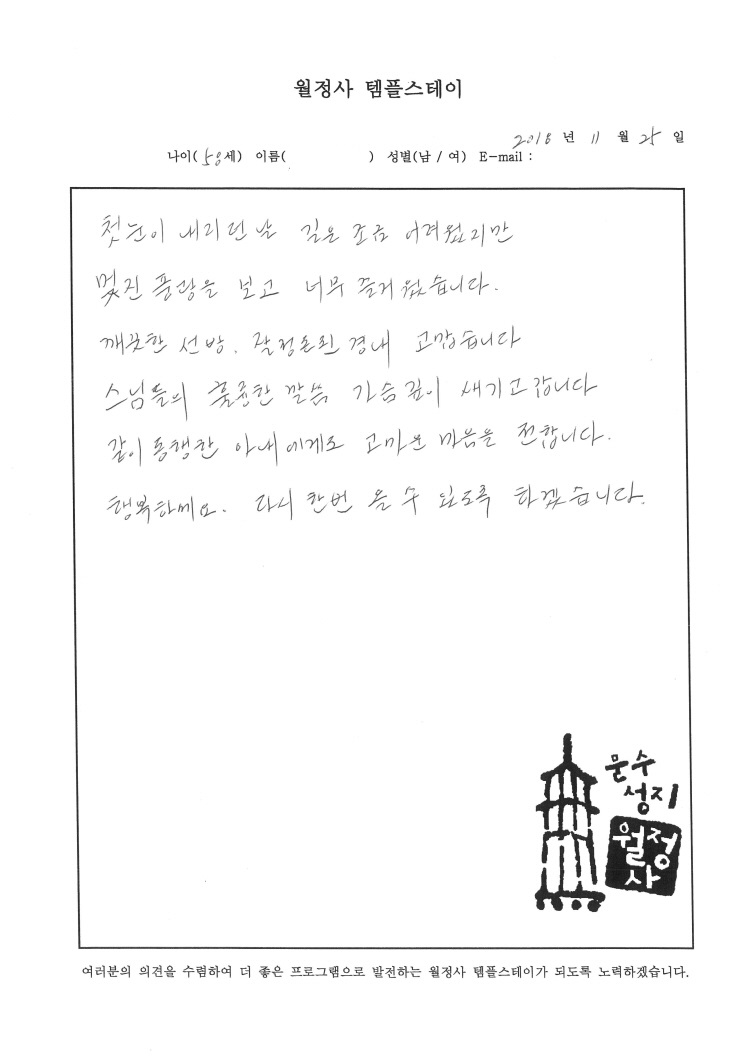 월정사 템플스테이
2018 년 11 월 25 일
나이( 58 세) 이름( ) 성별(남 / 여) E-mail :
첫눈이 내리던 날 길은 조금 어려웠지만
멋진 풍광을 보고 너무 즐거웠습니다.
깨끗한 선방, 잘정돈된 경내 고맙습니다
스님들의 훌륭한 말씀 가슴 깊이 새기고 갑니다
같이 동행한 아내에게도 고마운 마음을 전합니다.
행복하세요. 다시 한번 올 수 있도록 하겠습니다.
문수
성지
월정
사
여러분의 의견을 수렴하여 더 좋은 프로그램으로 발전하는 월정사 템플스테이가 되도록 노력하겠습니다.